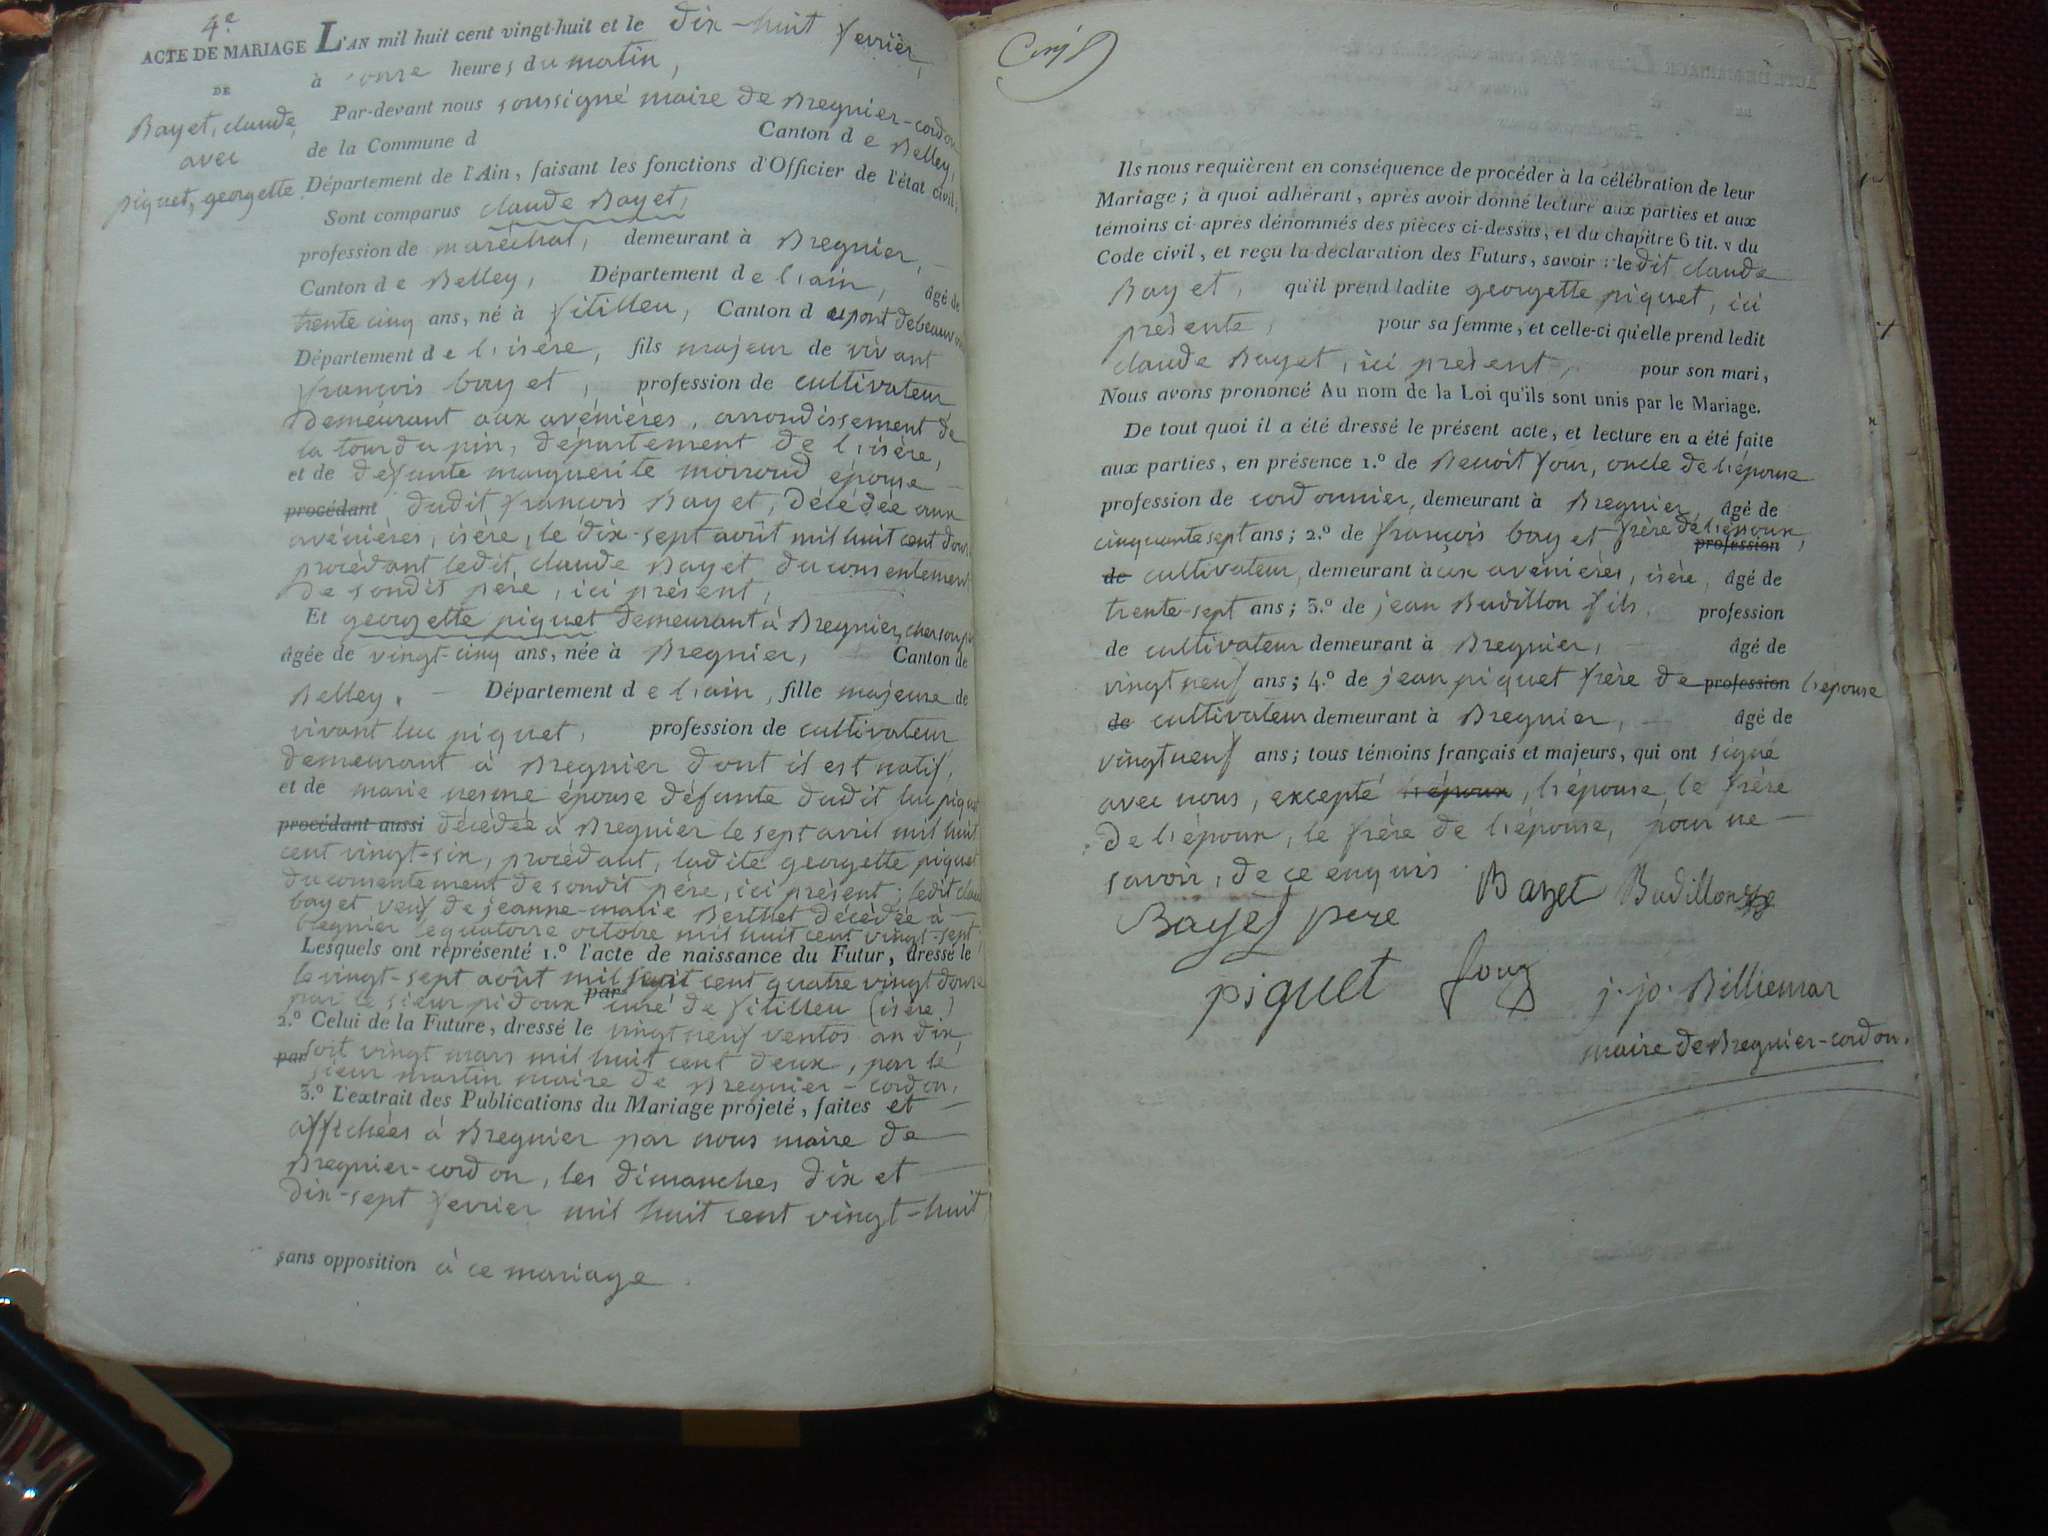 4.e
ACTE DE MARIAGE
DE
Bayet, claude,
avec
piquet, georgette.
L'AN mil huit cent vingt-huit et le dix-huit fevrier,
à onze heures du matin,
Par-devant nous soussigné maire de Bregnier-cordon
de la Commune d Canton de Belley,
Département de l'Ain, faisant les fonctions d'Officier de l'état civil.
Sont comparus claude Bayet,
profession de maréchal, demeurant à Bregnier,
Canton de Belley, Département de l'ain, âgé de
trente cinq ans, né à fitilleu, Canton du pont debeauvoi
Département de l'isère, fils majeur de vivant
françois bayet, profession de cultivateur
demeurant aux avénières, arrondissement de
la tourdupin, département de l'isère,
et de défunte marguerite morroud épouse
procédant dudit françois Bayet, décédée aux
avénières, isère, le dix-sept août mil huit cent douze
procédant ledit claude Bayet du consentement
de sondit père, ici présent,
Et georgette piquet demeurant à Bregnier, cherson p
âgée de vingt-cinq ans, née à Bregnier, Canton de
Belley. Département de l'ain, fille majeure de
vivant luc piquet, profession de cultivateur
demeurant à Bregnier dont il est natif,
et de marie nesme épouse défunte dudit luc piquet
procédant aussi décédée à Bregnier le sept avril mil huit
cent vingt-six, procédant, ladite georgette piquet
du consentement de sondit père, ici présent; ledit claude
bayet veuf de jeanne-marie Berthet décédée à
bregnier le quatorze octobre mil huit cent vingt-sept,
Lesquels ont représenté 1.º l'acte de naissance du Futur, dressé le
le vingt-sept août mil sept cent quatre vingt douze
par par le sieur pidoux curé de fitilleu (isère)
2.º Celui de la Future, dressé le vingt neuf ventos an dix,
par soit vingt mars mil huit cent deux, par le
sieur martin maire de Bregnier-cordon,
3.º L'extrait des Publications du Mariage projeté, faites et
affichées à Bregnier par nous maire de
Bregnier-cordon, les dimanches dix et
dix-sept fevrier mil huit cent vingt-huit
sans opposition à ce mariage.
Ils nous requièrent en conséquence de procéder à la célébration de leur
Mariage; à quoi adhérant, après avoir donné lecture aux parties et aux
témoins ci-après dénommés des pièces ci-dessus, et du chapitre 6 tit. v du
Code civil, et reçu la déclaration des Futurs, savoir: le dit claude
Bayet, qu'il prend ladite georgette piquet, ici
présente, pour sa femme, et celle-ci qu'elle prend ledit
claude Bayet, ici présent, pour son mari,
Nous avons prononcé Au nom de la Loi qu'ils sont unis par le Mariage.
De tout quoi il a été dressé le présent acte, et lecture en a été faite
aux parties, en présence 1.º de Benoit four, oncle de l'épouse
profession de cordonnier, demeurant à Bregnier, âgé de
cinquante sept ans; 2.º de françois bayet frère de l'époux, profession
de cultivateur, demeurant à aux avénières, isère, âgé de
trente-sept ans; 3.º de jean Budillon fils, profession
de cultivateur demeurant à Bregnier, âgé de
vingt neuf ans; 4.º de jean piquet frère de profession l'épouse
de cultivateur demeurant à Bregnier, âgé de
vingt neuf ans; tous témoins français et majeurs, qui ont signé
avec nous, excepté l'époux, l'épouse, le frère
de l'époux, le frère de l'épouse, pour ne
savoir, de ce enquis.
Bayet Budillon
Bayet pere
piquet four j. jo. Billiemar
maire de Bregnier-cordon.